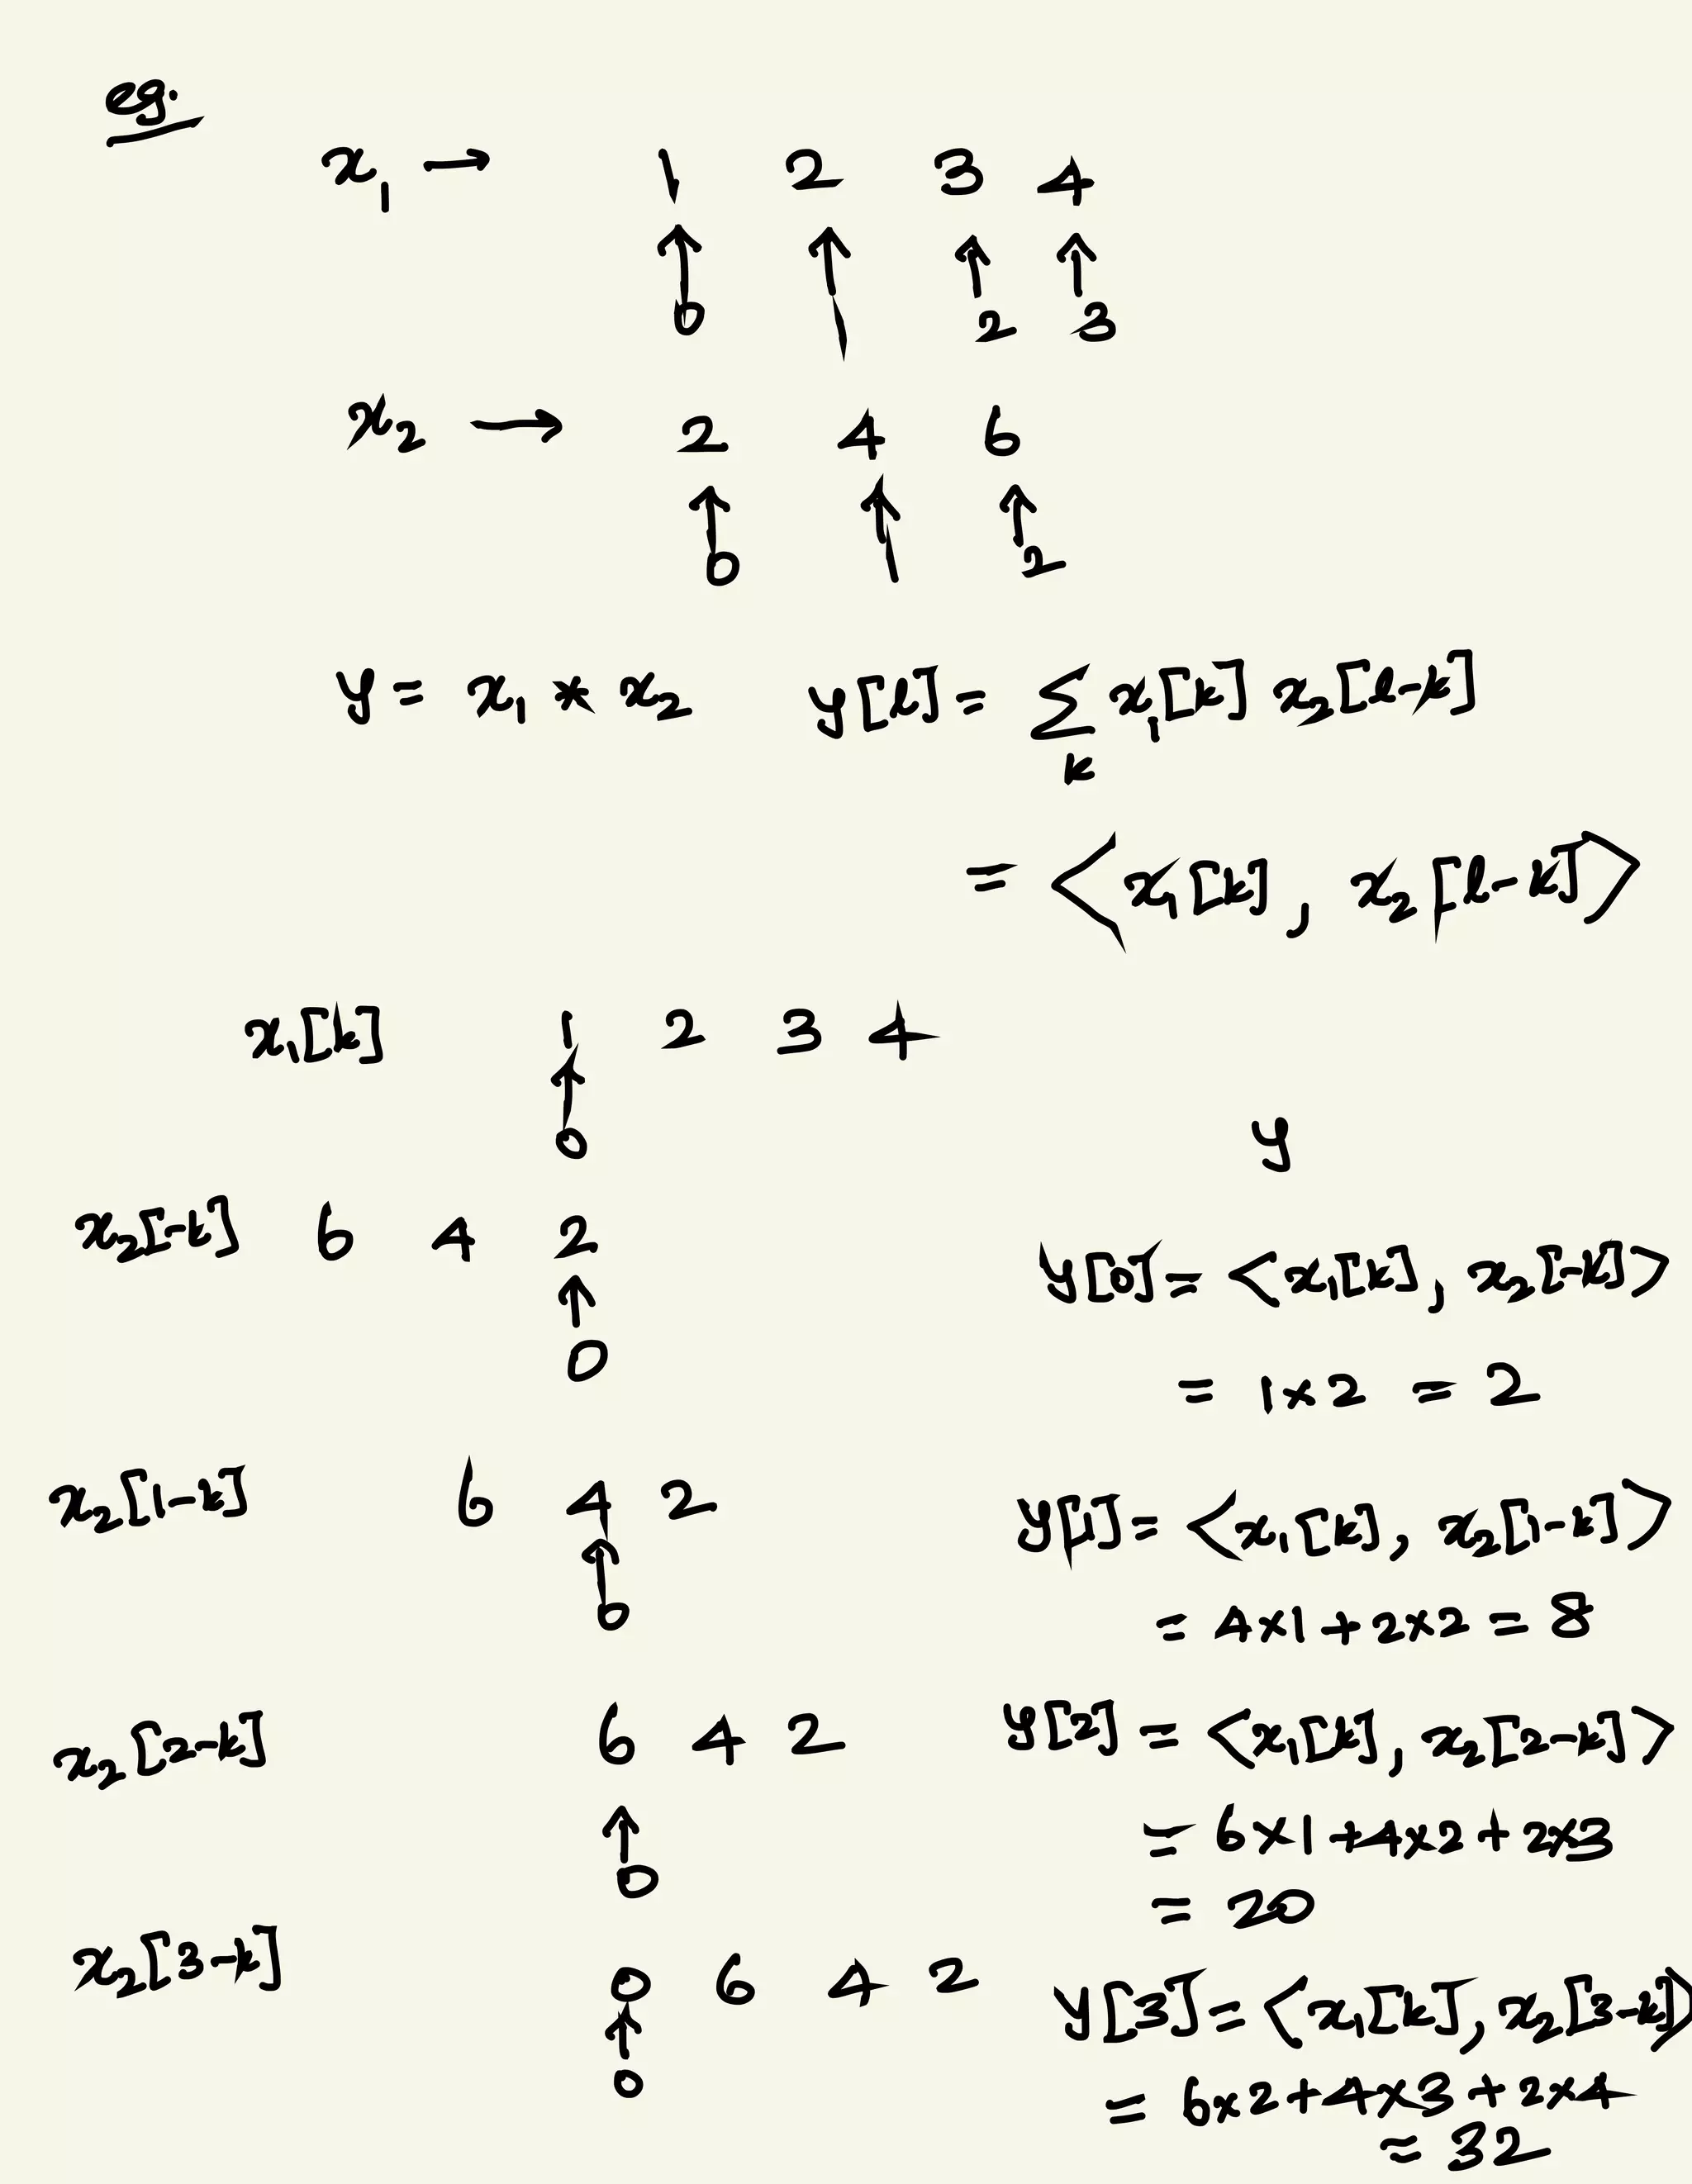 eg.
x₁ → 1 2 3 4
↑ ↑ ↑ ↑
0 1 2 3
x₂ → 2 4 6
↑ ↑ ↑
0 1 2
y = x₁ * x₂ y[l] = Σ x₁[k] x₂[l-k]
k
= <x₁[k], x₂[l-k]>
x₁[k] 1 2 3 4
↑
0
y
x₂[-k] 6 4 2
↑
0
y[0] = <x₁[k], x₂[-k]>
= 1×2 = 2
x₂[1-k] 6 4 2
↑
0
y[1] = <x₁[k], x₂[1-k]>
= 4×1 + 2×2 = 8
x₂[2-k] 6 4 2
↑
0
y[2] = <x₁[k], x₂[2-k]>
= 6×1 + 4×2 + 2×3
= 20
x₂[3-k] 0 6 4 2
↑
0
y[3] = <x₁[k], x₂[3-k]>
= 6×2 + 4×3 + 2×4
= 32